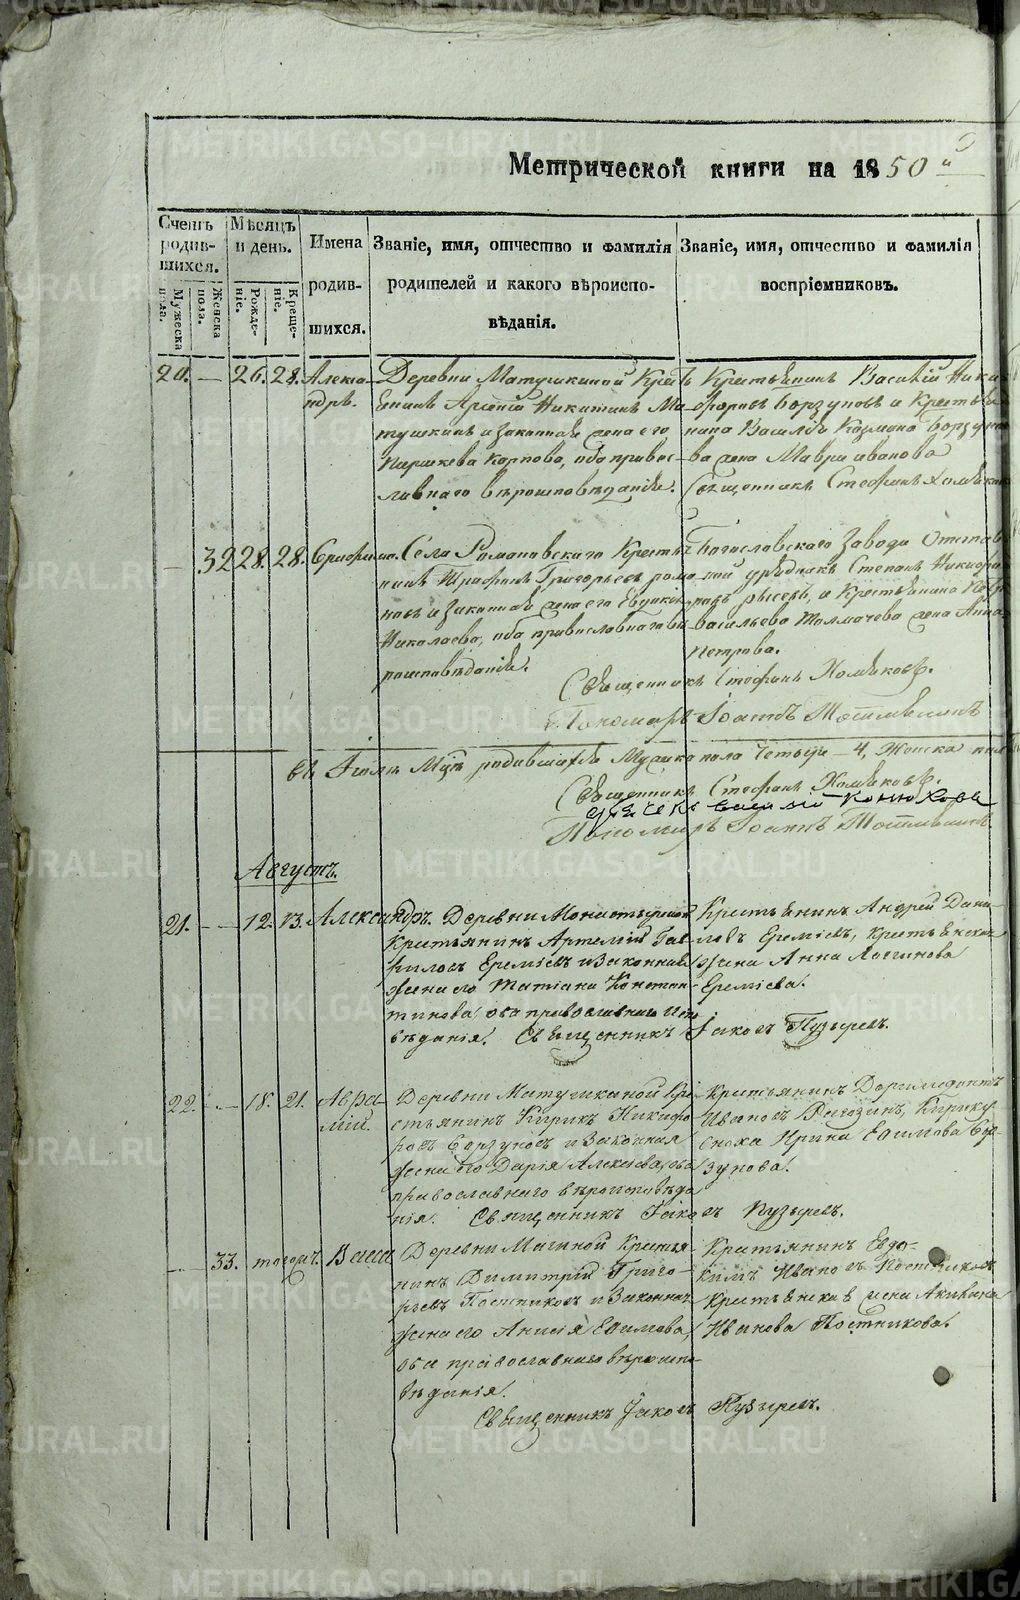 Метрической книги на 1850й
Счетъ родив-шихся.
Мужеска пола.
Женска пола.
Мѣсяцъ и день.
Рожде-ніе.
Креще-ніе.
Имена
родив-
шихся.
Званіе, имя, отчество и фамилія
родителей и какого вѣроиспо-
вѣданія.
Званіе, имя, отчество и фамилія
воспріемниковъ.
20. — 26. 28. Алекса-
ндръ.
Деревни Матушкиной Крест
янинъ Арсеній Никитинъ Ма-
тушкинъ и законная жена его
Карпова, оба правос-
лавнаго вѣроисповѣданія.
Крестьянинъ Василій Ники
форовъ Борзуновъ и Крестья
нина Василья Козмина Борзуно
ва жена Мавра Иванова
Священникъ Стефанъ Хомяковъ
— 32 28. 28.
Села Романовскаго Крестья
нинъ Трофимъ Григорьевъ Рома
новъ и законная жена его Евдокія
Николаева, оба православнаго вѣ
роисповѣданія.
Богословскаго завода Отстав
ной урядникъ Степанъ Никифо
ровъ и Крестьянина
Васильева Толмачева жена Анна
Петрова.
Священникъ Стефанъ Хомяковъ.
Пономарь Іоаннъ
въ Іюлѣ М-цѣ родившихся Мужеска пола четыре — 4, Женска
Священникъ Стефанъ Хомяковъ.
дьячекъ Василій Конюховъ
Пономарь Іоаннъ
Августъ.
21. — 12. 13. Александръ.
Деревни Монастырской
Крестьянинъ Артемій Гав
риловъ Еремѣевъ и законная
жена его Татіана Констан-
тинова, оба православнаго испо
вѣданія.
Крестьянинъ Андрей Дани-
ловъ Еремѣевъ, крестьянская
жена Анна Логинова
Еремѣева.
Священникъ Іаковъ Пузыревъ.
22. — 18. 21. Авра-
мій.
Деревни Матушкиной Кре
стьянинъ Кирикъ Никифо
ровъ Борзуновъ и законная
жена его Дарія Алексіева, оба
православнаго вѣроисповѣда
нія.
Крестьянинъ Доримедонтъ
Ивановъ Рагозинъ, Кирику
сноха Ирина Ефимова Бор-
зунова.
Священникъ Іаковъ Пузыревъ.
— 33. тогожъ. Васса
Деревни Магиной Крестья
нинъ Димитрій Григо-
рьевъ Постниковъ и законная
жена его Анисія Ефимова,
оба православнаго вѣроиспо-
вѣданія.
Крестьянинъ Евдо-
кимъ Ивановъ Постниковъ
Крестьянская жена Акилина
Иванова Постникова.
Священникъ Іаковъ Пузыревъ.
METRIKI.GASO-URAL.RU